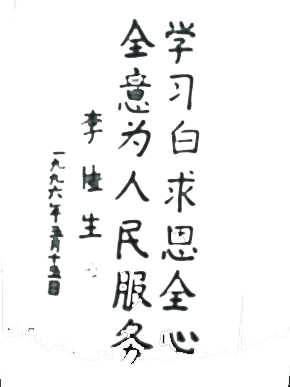 学习白求恩全心
全意为人民服务
李 生
一九九六年五月十五日